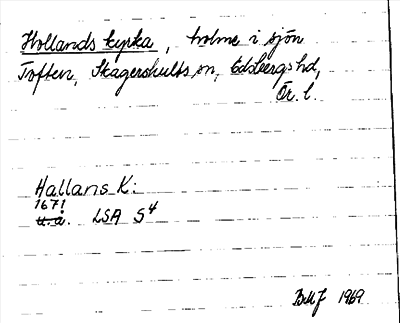 Hollands kyrka, holme i sjön
Toften, Skagershults sn, Edsbergs hd,
Ör. l.
Hallans K:
1671
u.å. LSA S4
BMJ 1969